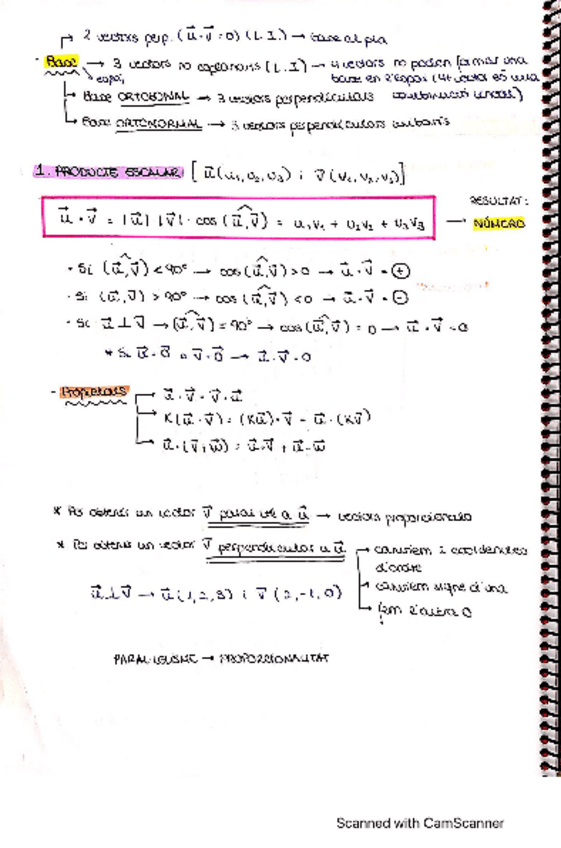 2 vectors perp. (u⃗·v⃗=0) (L.I) → base al pla
- Base → 3 vectors no coplanaris (L.I) → 4 vectors no poden formar una
espai, base en l'espai (4t vector és una
Base ORTOGONAL → 3 vectors perpendiculars combinació lineal)
Base ORTONORMAL → 3 vectors perpendiculars unitaris
1. PRODUCTE ESCALAR [ u⃗(u₁,u₂,u₃) i v⃗(v₁,v₂,v₃)]
RESULTAT:
u⃗·v⃗ = |u⃗| |v⃗| · cos (u⃗,v⃗) = u₁v₁ + u₂v₂ + u₃v₃ → NÚMERO
· Si (u⃗,v⃗) < 90° → cos(u⃗,v⃗) > 0 → u⃗·v⃗ = ⊕
· Si (u⃗,v⃗) > 90° → cos(u⃗,v⃗) < 0 → u⃗·v⃗ = ⊖
· Si u⃗⊥v⃗ → (u⃗,v⃗) = 90° → cos(u⃗,v⃗) = 0 → u⃗·v⃗ = 0
* Si u⃗=0⃗ o v⃗=0⃗ → u⃗·v⃗=0
- Propietats → u⃗·v⃗ = v⃗·u⃗
→ K(u⃗·v⃗) = (Ku⃗)·v⃗ = u⃗·(Kv⃗)
→ u⃗·(v⃗+w⃗) = u⃗·v⃗ + u⃗·w⃗
* Per obtenir un vector v⃗ paral·lel a u⃗ → vectors proporcionals
* Per obtenir un vector v⃗ perpendicular a u⃗ → canviem 2 coordenades
d'ordre
u⃗⊥v⃗ → u⃗(1,2,3) i v⃗(2,-1,0) → canviem signe d'una
→ fem l'altra 0
PARAL·LELISME → PROPORCIONALITAT
Scanned with CamScanner